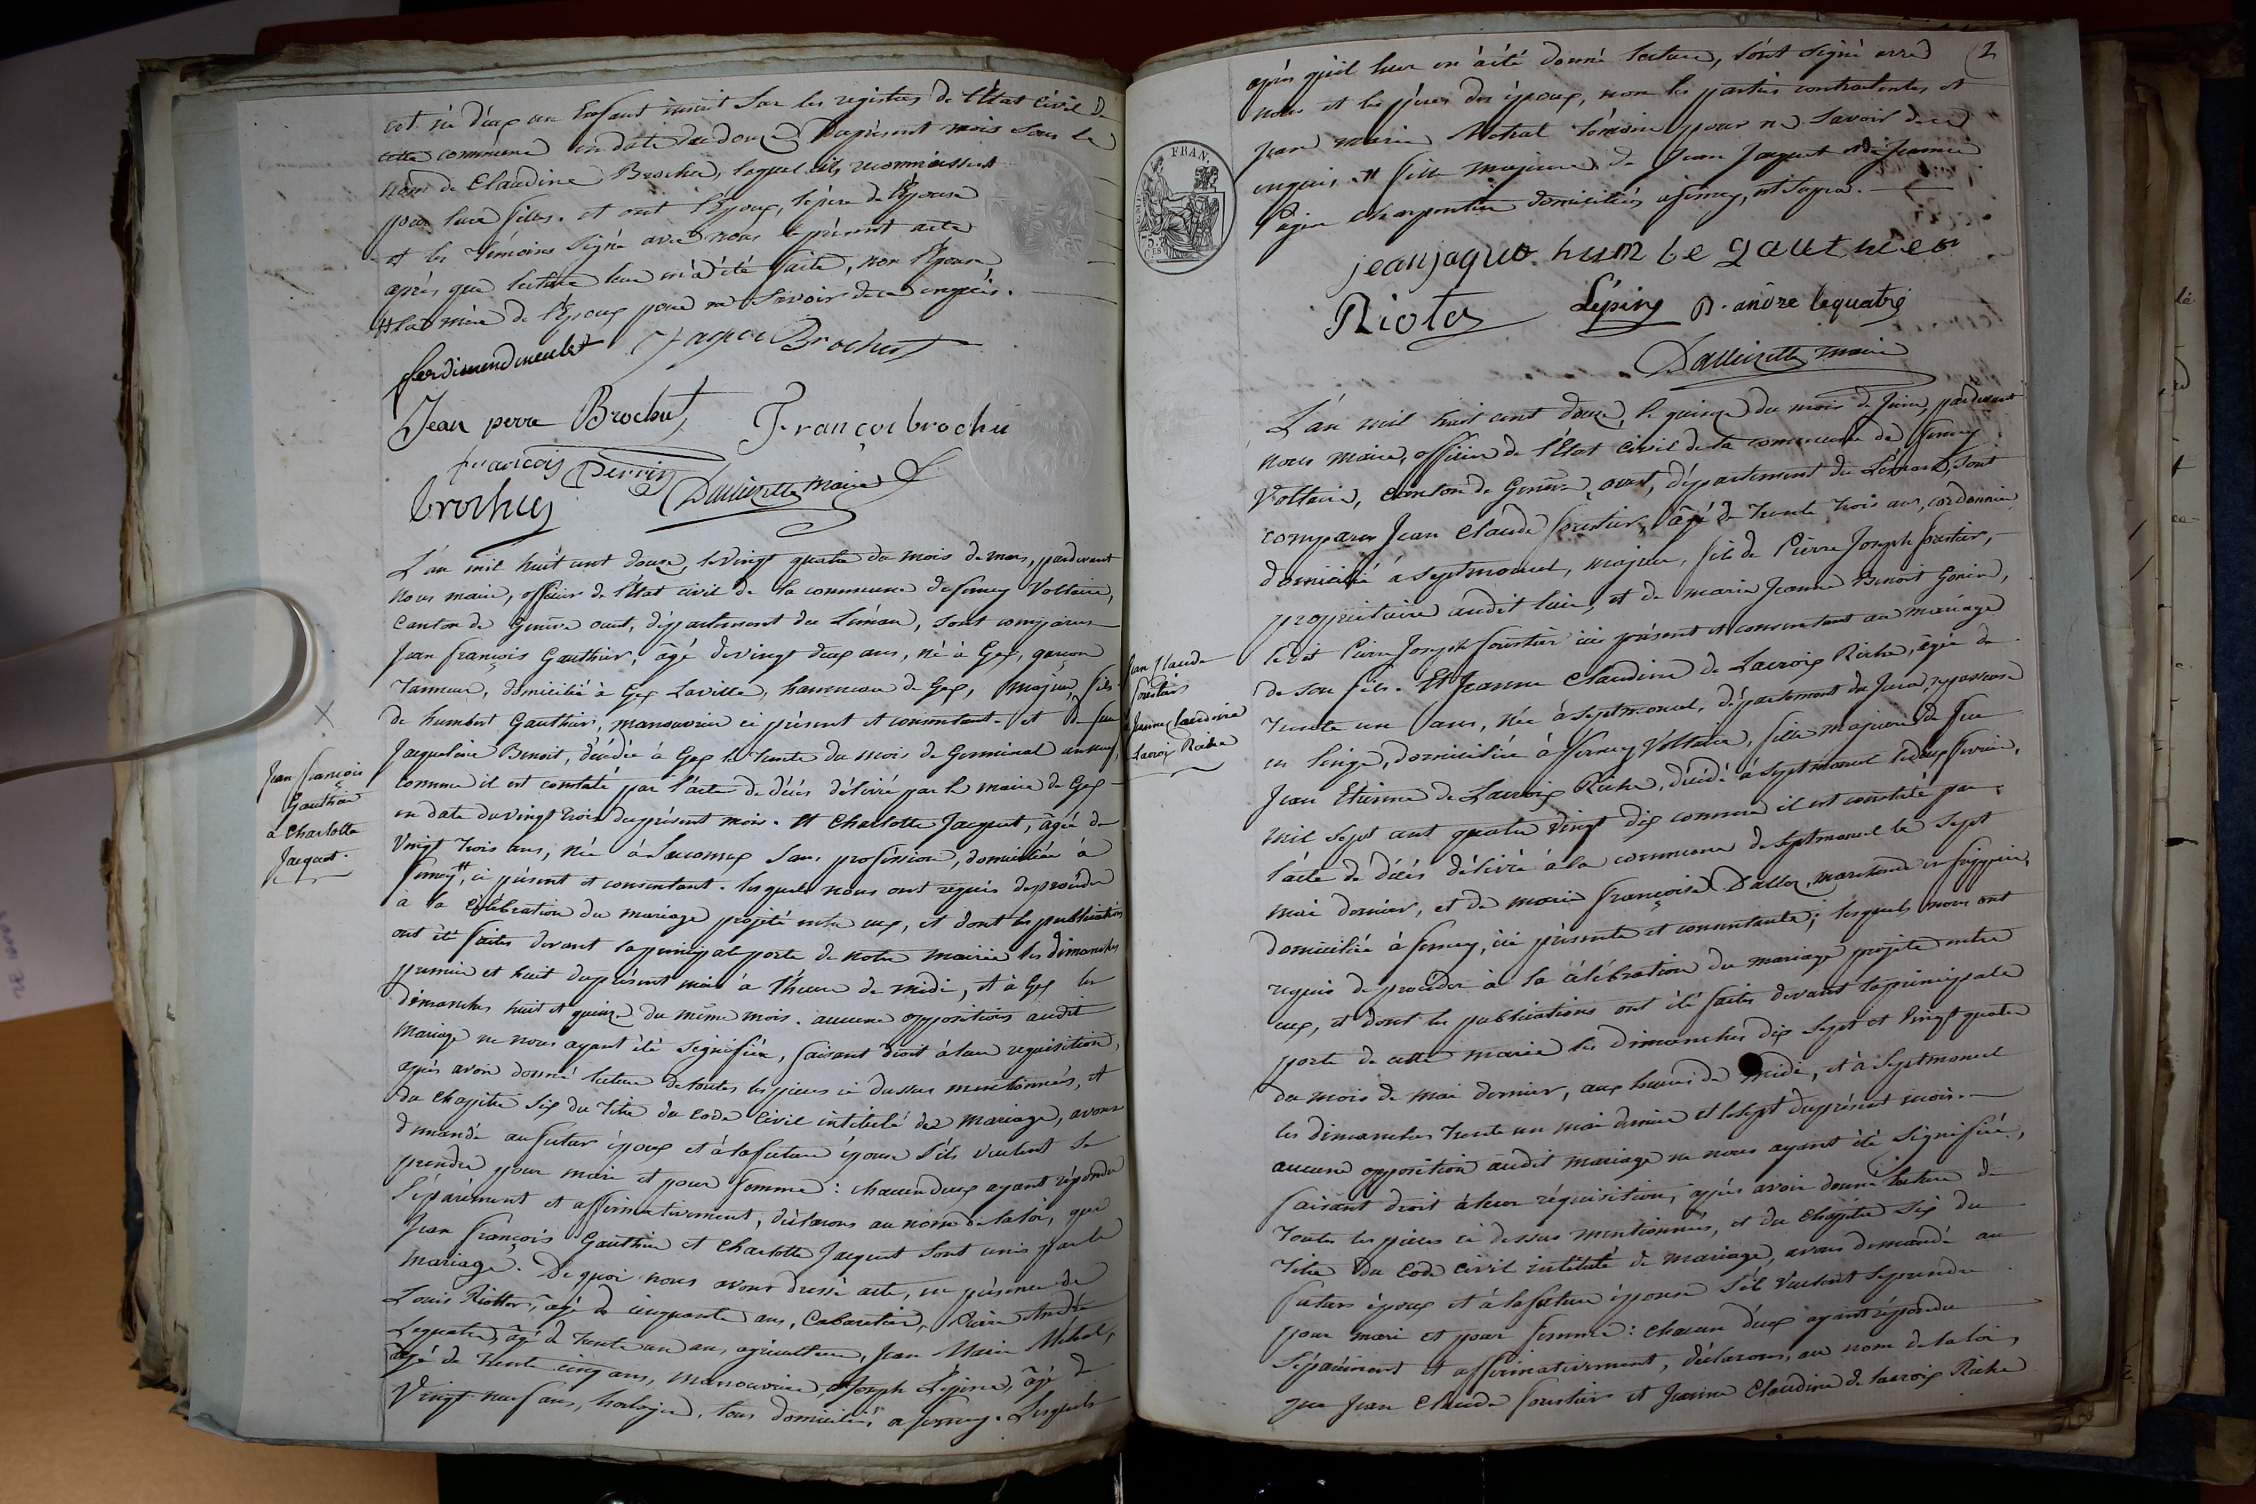 est né d'eux un Enfant inscrit sur les registres de l'Etat Civil de
cette commune en date du douze du présent mois sous le
nom de Claudine Brochu, laquel ils reconnaissent
pour leur fille. et ont l'Epoux, le père de l'Epouse
et les témoins signé avec nous le présent acte
après que lecture leur en a été faite, non l'Epouse
la mère de l'Epoux pour ne savoir de ce enquis.
Brochut
Jean pierre Brochut françoi brochu
françois Perrin
brochu maire
L'an mil huit cent douze, le vingt quatre du mois de mars, pardevant
nous maire, officier de l'Etat civil de la commune de ferney Voltaire,
Canton de Genève ouest, département du Léman, sont comparus
Jean françois Gauthier, âgé de vingt deux ans, né à Gex, garçon
Tanneur, domicilié à Gex Laville, hammeau de Gex, majeur, fils
de humbert Gauthier, manouvrier ci présent et consentant. et de feue
Jacqueline Benoit, décédée à Gex le trente du mois de Germinal an neuf,
comme il est constaté par l'acte de décès délivré par le maire de Gex
en date du vingt trois du présent mois. Et Charlotte Jacquet, âgée de
Vingt trois ans, née à Saconnex sans proféssion, domiciliée à
ferney #, ci présent et consentant. lesquels nous ont requis de procéder
à la célébration du mariage projeté entre eux, et dont les publications
ont été faites devant la principale porte de notre mairie les dimanches
premier et huit du présent mois à l'heure de midi, et à Gex les
dimanches huit et quinze du même mois. aucune opposition audit
mariage ne nous ayant été signifiée, faisant droit à leur requisition,
après avoir donné lecture de toutes les pieces ci dessus mentionnées, et
du chapitre six du titre du Code Civil intitulé du mariage, avons
demandé au futur époux et à la future épouse s'ils veulent se
prendre pour mari et pour femme : chacun d'eux ayant répondu
séparément et affirmativement, déclarons au nom de la loi, que
Jean françois Gauthier et Charlotte Jacquet sont unis par le
mariage. De quoi nous avons dressé acte, en présence de
Louis Riotton, âgé de cinquante ans, Cabaretier, Pierre André
Lequatre, âgé de trente un ans, agriculteur, Jean Marie Métral,
âgé de trente cinq ans, manouvrier, et Joseph Lépine, âgé de
Vingt neuf ans, horloger, tous domiciliés à ferney. Lesquels
Jean françois
Gauthier
à Charlotte
Jacquet.
2
après qu'il leur en a été donné lecture, sont signé avec
nous et les pères des époux, non les parties contractantes et
Jean marie Métral témoin pour ne savoir de ce
enquis. # fille majeure de Jean Jaquet et de Jeanne
charpentier domiciliés à ferney, et supra.
FRAN.
jean jaquo. humbe gautheer
Rioton Lépine P. andre lequatre
maire
L'an mil huit cent douze, le quinze du mois de Juin, pardevant
nous maire, officier de l'Etat civil de la commune de ferney
Voltaire, Canton de Genève ouest, département du Léman, sont
comparus Jean Claude foustier, âgé de trente trois ans, cordonnier
domicilié à septmoncel, majeur, fils de Pierre Joseph foustier,
propriétaire audit lieu, et de marie Jeanne Benoit Gonin,
ledit Pierre Joseph foustier ici présent et consentant au mariage
de son fils. Et Jeanne Claudine de Lacroix Riche, âgée de
trente un ans, née à septmoncel, département du Jura, repasseuse
en linge, domiciliée à ferney Voltaire, fille majeure de feu
Jean Etienne de Lacroix Riche, décédé à septmoncel le deux fevrier,
mil sept cent quatre vingt dix comme il est constaté par
l'acte de décès délivré à la commune de septmoncel le sept
mai dernier, et de marie françoise Dalloz, marchande en fripperie,
domiciliée à ferney, ici présente et consentante ; lesquels nous ont
requis de procéder à la célébration du mariage projeté entre
eux, et dont les publications ont été faites devant la principale
porte de cette mairie les dimanches dix sept et vingt quatre
du mois de mai dernier, aux heures de midi, et à Septmoncel
les dimanches trente un mai dernier et le sept du présent mois.
aucune opposition audit mariage ne nous ayant été signifiée,
faisant droit à leur réquisition, après avoir donné lecture de
toutes les pièces ci dessus mentionnées, et du chapitre six du
titre du Code civil intitulé du mariage, avons demandé au
futur époux et à la future épouse s'ils veulent se prendre
pour mari et pour femme : chacun d'eux ayant répondu
séparément et affirmativement, déclarons, au nom de la loi,
que Jean Claude foustier et Jeanne Claudine de lacroix Riche
Jean Claude
foustier
Jeanne Claudine
Lacroix Riche